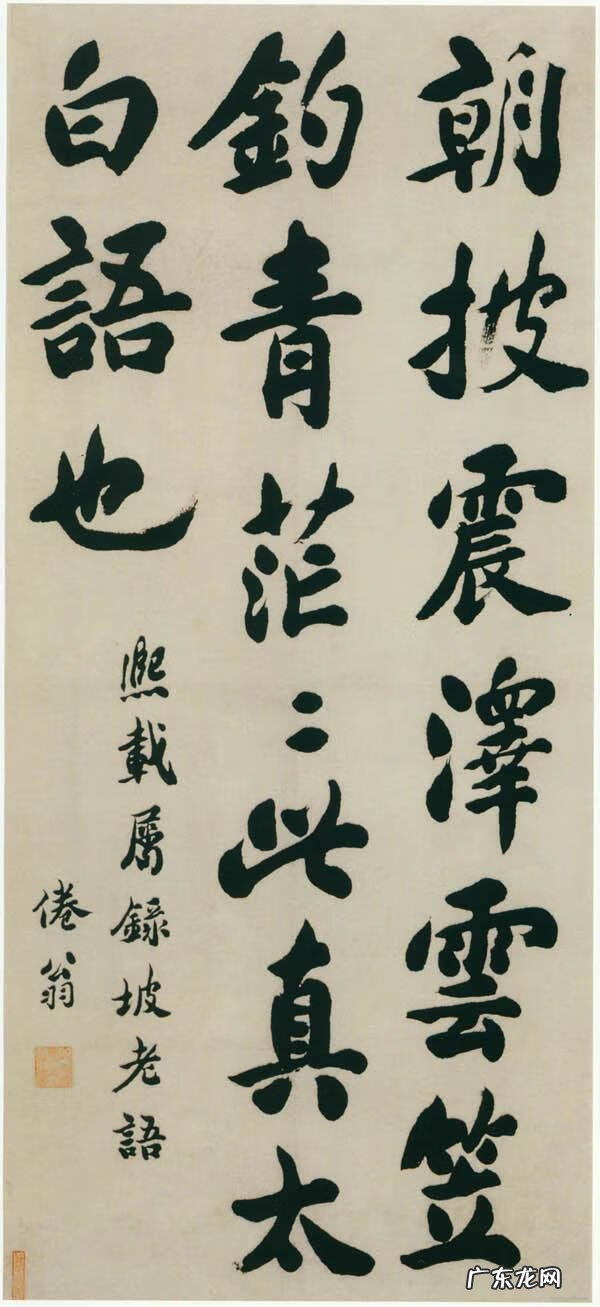 朝披震澤雲笠
釣青茫〻此真太
白語也
熙載屬錄坡老語
倦翁
广东龙网